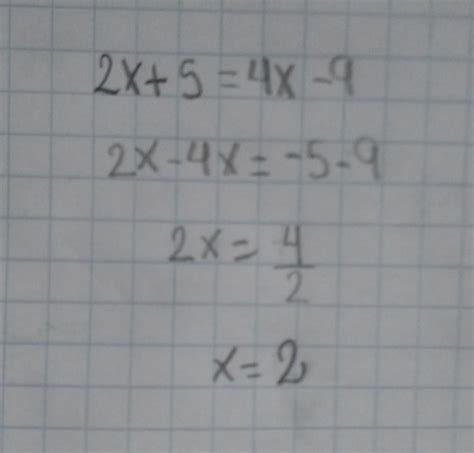 2x+5=4x-9
2x-4x=-5-9
2x=4/2
x=2